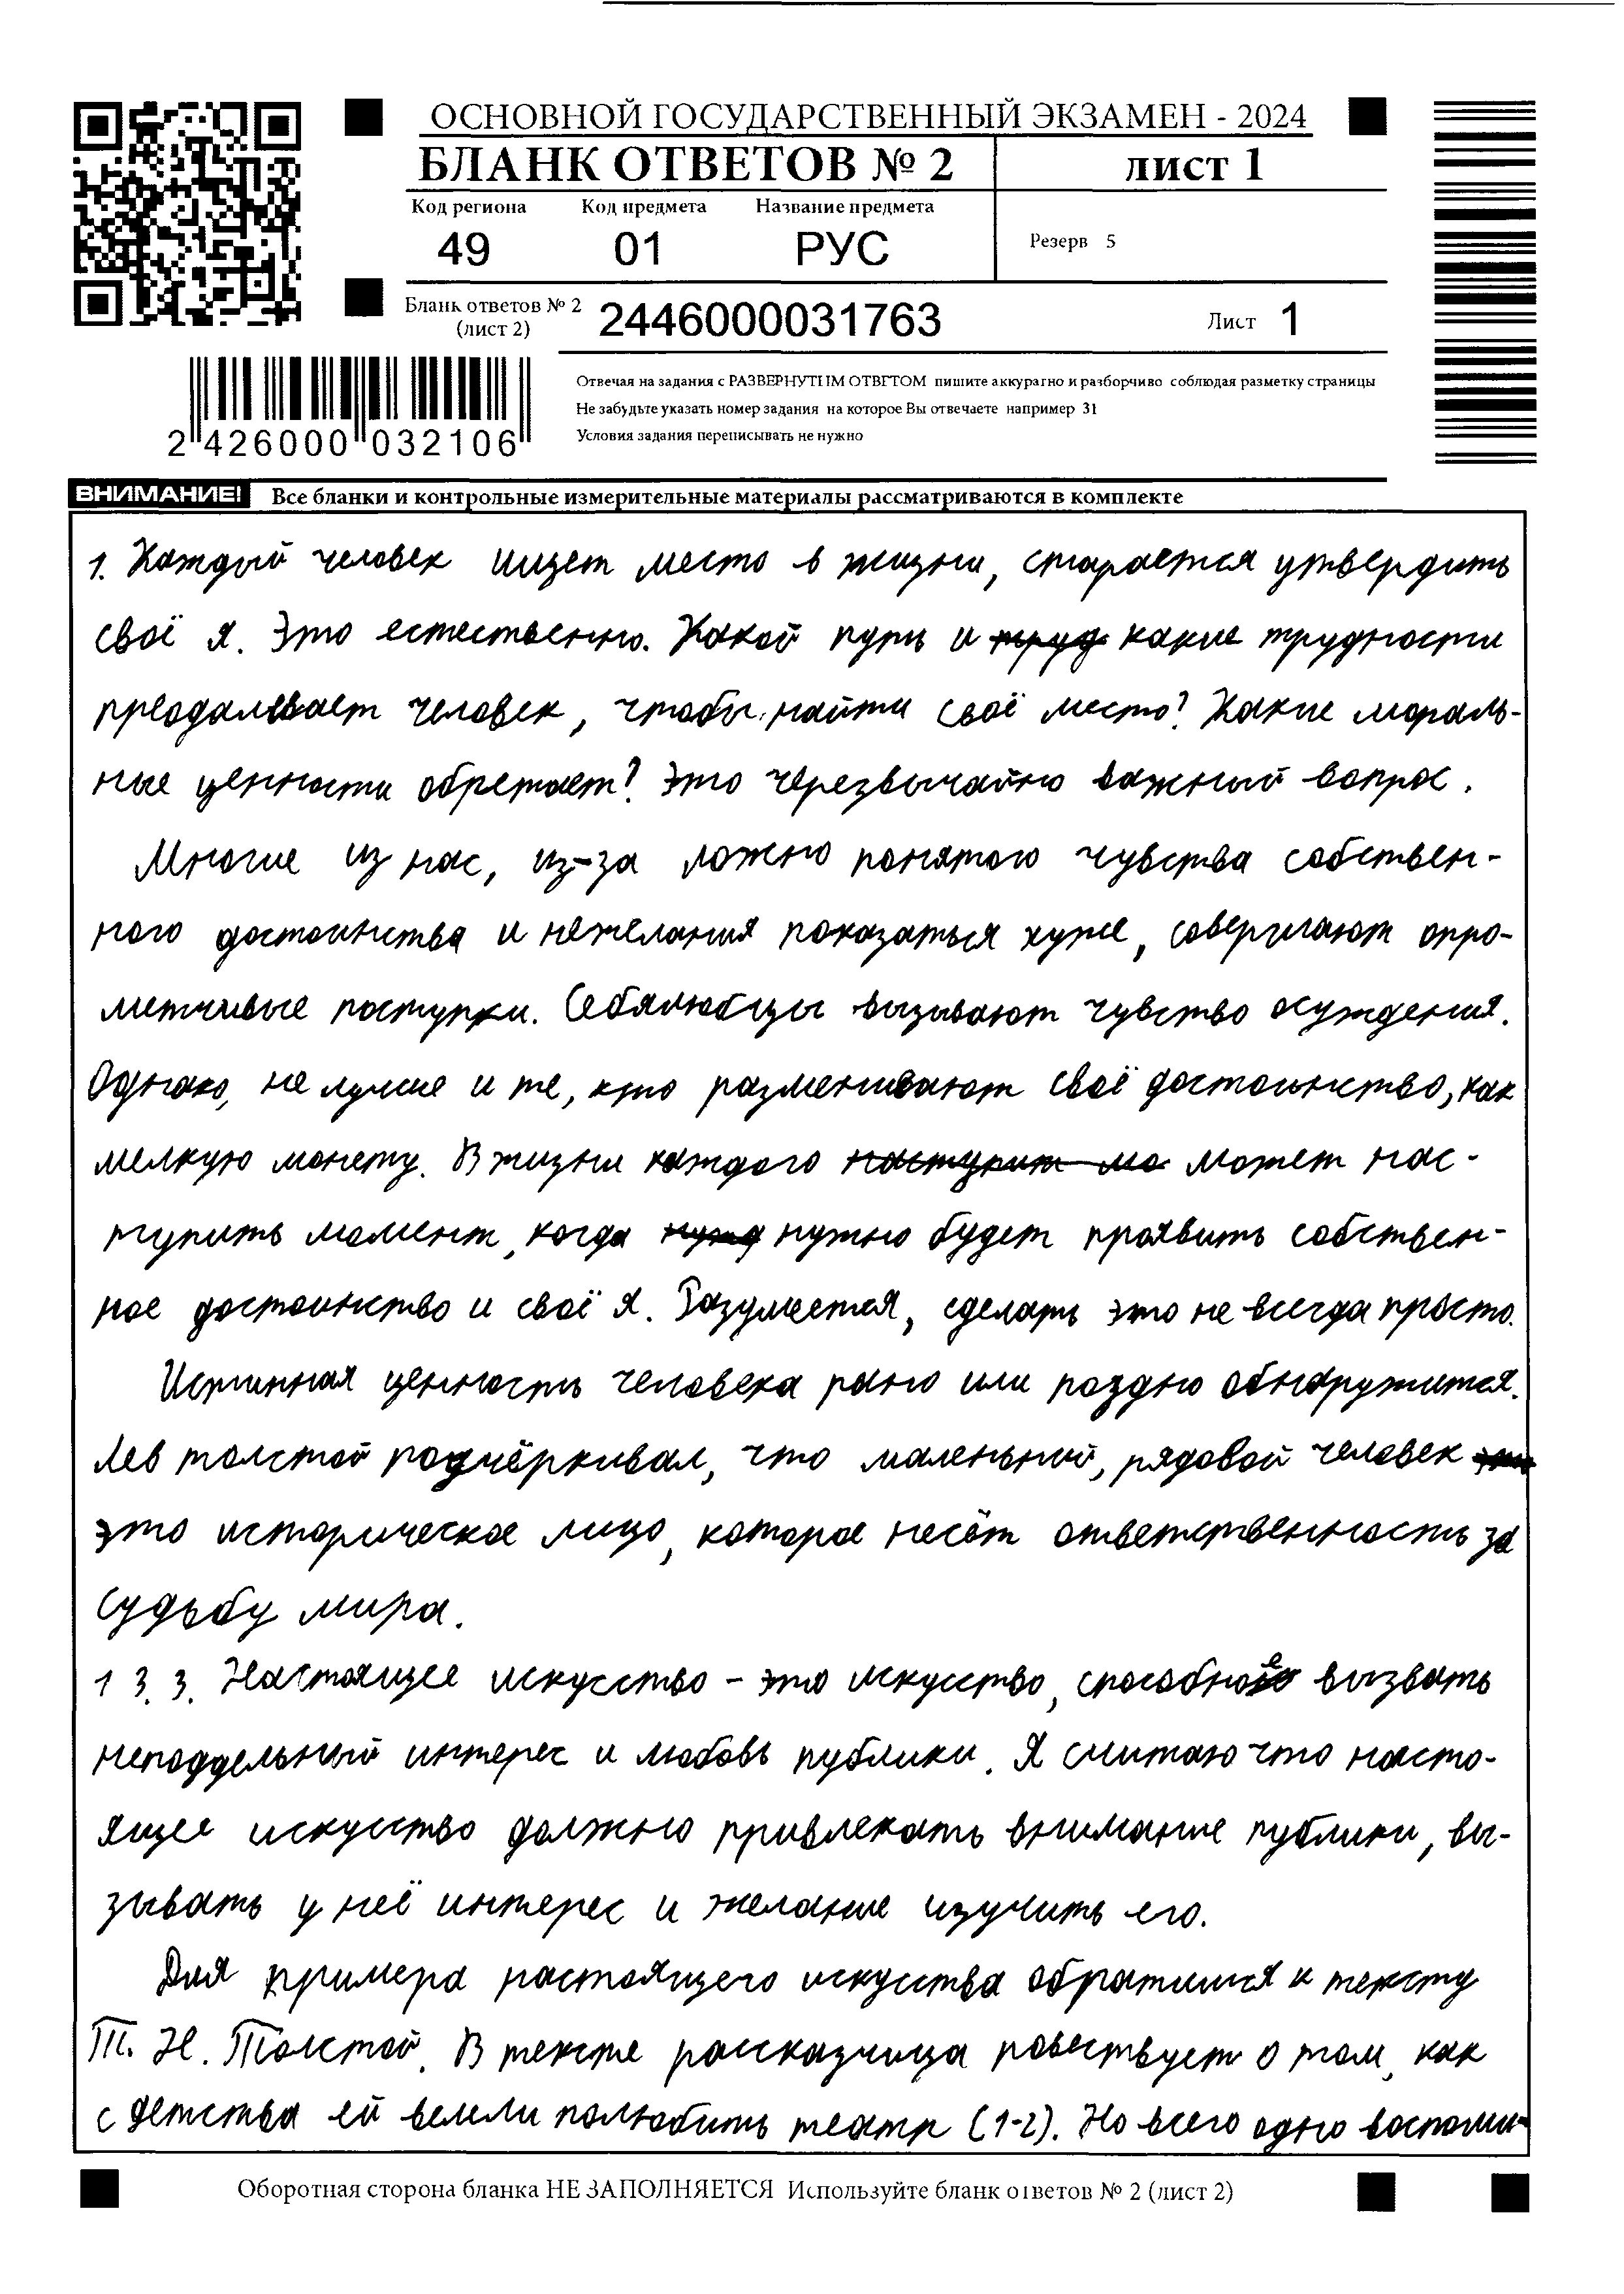 ОСНОВНОЙ ГОСУДАРСТВЕННЫЙ ЭКЗАМЕН - 2024
БЛАНК ОТВЕТОВ № 2
лист 1
Код региона Код предмета Название предмета
49 01 РУС
Резерв 5
Бланк ответов № 2
(лист 2)
2446000031763
Лист 1
Отвечая на задания с РАЗВЕРНУТЫМ ОТВЕТОМ пишите аккуратно и разборчиво соблюдая разметку страницы
Не забудьте указать номер задания на которое Вы отвечаете например 31
Условия задания переписывать не нужно
2 426000 032106
ВНИМАНИЕ! Все бланки и контрольные измерительные материалы рассматриваются в комплекте
1. Каждый человек ищет место в жизни, старается утвердить
своё я. Это естественно. Какой путь и труд какие трудности
преодалевает человек, чтобы найти своё место? Какие мораль-
ные ценности обретает? Это черезвычайно важный вопрос.
Многие из нас, из-за ложно понятого чувства собствен-
ного достоинства и нежелания показаться хуже, совершают опро-
метчивые поступки. Себялюбцы вызывают чувство осуждения.
Однако, не лучше и те, кто разменивают своё достоинство, как
мелкую монету. В жизни каждого наступит мо может нас-
тупить момент, когда нужд нужно будет проявить собствен-
ное достоинство и своё я. Разумеется, сделать это не всегда просто.
Истинная ценность человека рано или поздно обнаружится.
Лев толстой подчёркивал, что маленький, рядовой человек это
это историческое лицо, которое несёт ответственность за
судьбу мира.
13.3. Настоящее искусство - это искусство, способное вызвать
неподдельный интерес и любовь публики. Я считаю что насто-
ящее искусство должно привлекать внимание публики, вы-
зывать у неё интерес и желание изучить его.
Для примера настоящего искусства обратимся к тексту
Т. Н. Толстой. В тексте рассказчица повествует о том, как
с детства ей велели полюбить театр (1-2). Но всего одно воспоми-
Оборотная сторона бланка НЕ ЗАПОЛНЯЕТСЯ Используйте бланк ответов № 2 (лист 2)